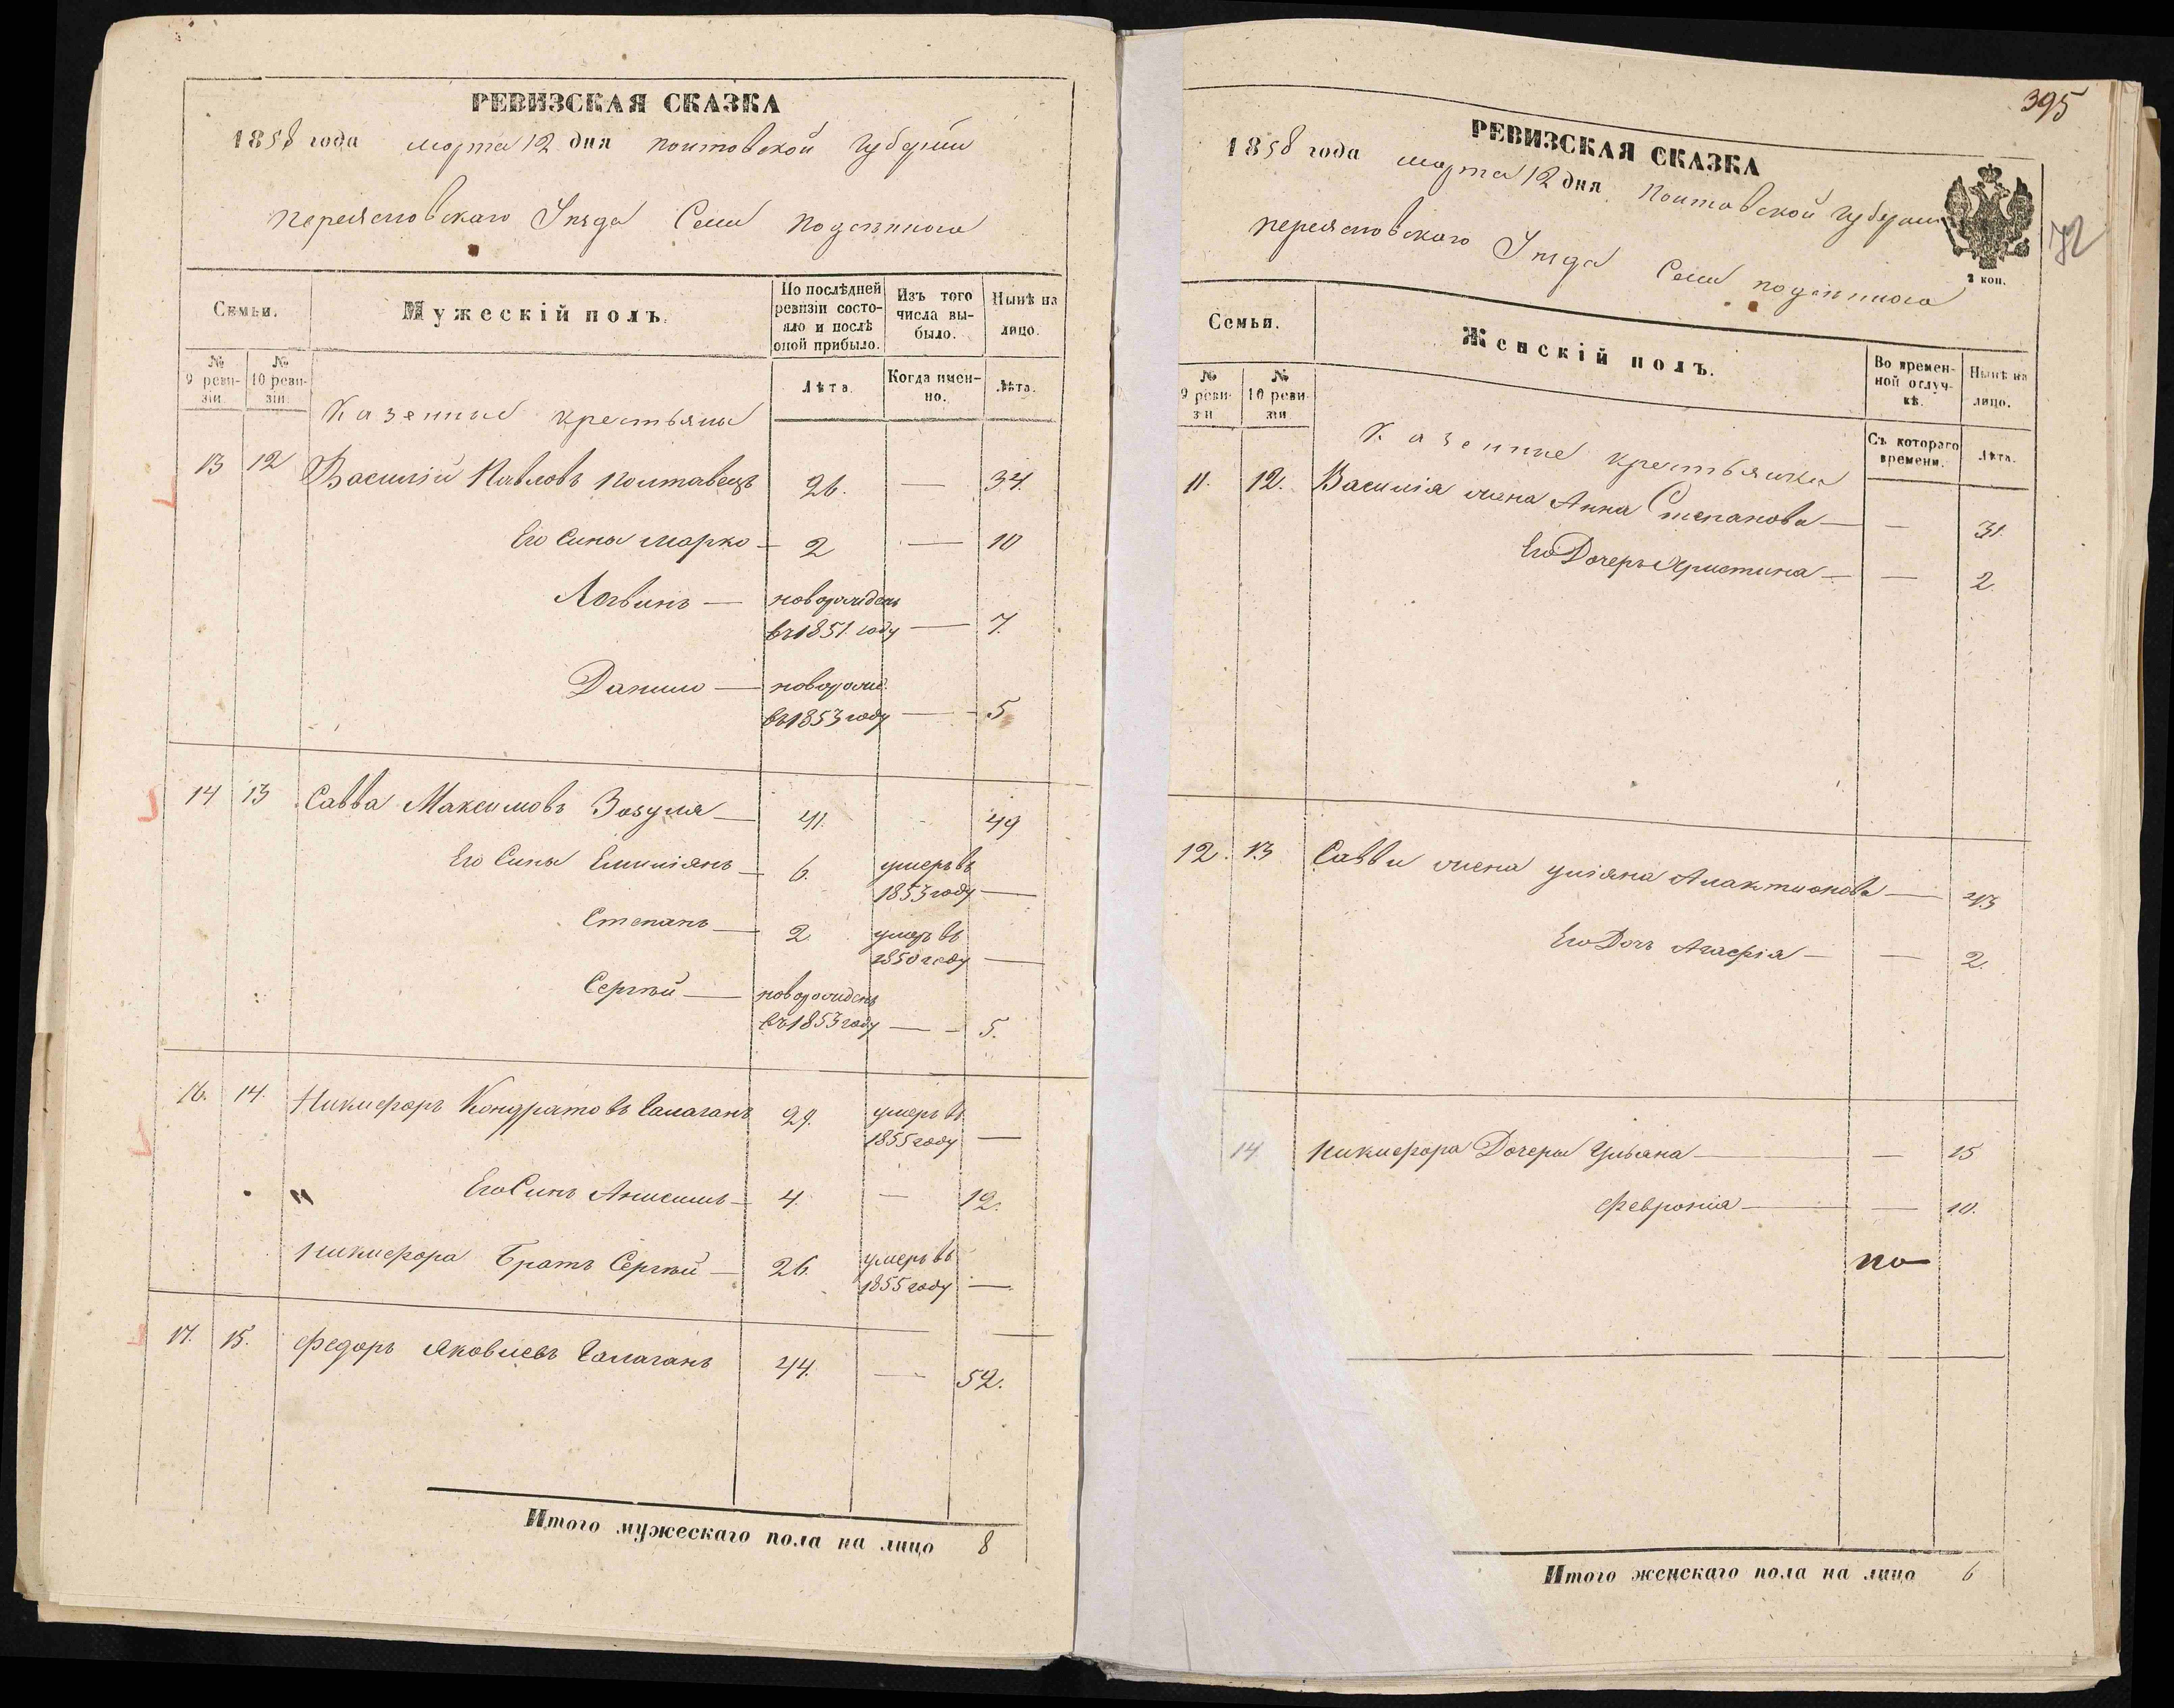 РЕВИЗСКАЯ СКАЗКА
1858 года марта 12 дня Полтавской Губернии
Переясловскаго Уезда Села
Семьи.
Мужескій полъ.
По послѣдней ревизіи состояло и послѣ оной прибыло.
Изъ того числа выбыло.
Нынѣ на лицо.
№ 9 ревизіи.
№ 10 ревизіи.
Лѣта.
Когда именно.
Лѣта.
Казенные крестьяны
13 12 Василій Павловъ Полтавецъ 26. — 34.
Его Сыны Марко — 2 — 10
Логвинъ — новорожденъ
въ 1851 году — 7.
Данило — новорожд.
въ 1853 году — 5
14 13 Савва Максимовъ Зозуля — 41. 49
Его Сыны Емиліянъ — 6. умеръ въ
1853 году —
Степанъ — 2. умеръ въ
1850 году —
Сергѣй — новорожденъ
въ 1853 году — 5.
16. 14. Никифоръ Кондратовъ Галаганъ 29. умеръ въ
1855 году —
" Его Сынъ Анисимъ — 4. — 12.
Никифора Братъ Сергѣй — 26. умеръ въ
1855 году —
17. 15. Федоръ Яковлевъ Галаганъ 44. — 52.
Итого мужескаго пола на лицо 8
395
РЕВИЗСКАЯ СКАЗКА
1858 года марта 12 дня Полтавской Губернии
72
Переясловскаго Уезда Села
2 коп.
Семьи.
Женскій полъ.
Во временной отлучкѣ.
Нынѣ на лицо.
№ 9 ревизіи
№ 10 ревизіи
Съ котораго времени.
Лѣта.
Казенные крестьянки
11. 12. Василія жена Анна Степанова — — 31.
Его Дочерь Христина — — 2.
12. 13 Саввы жена Уліяна Алактионова — 43
Его Дочь Агафія — — 2.
14 Никифора Дочеры Ульяна — — 15
Февронія — — 10.
по
Итого женскаго пола на лицо 6